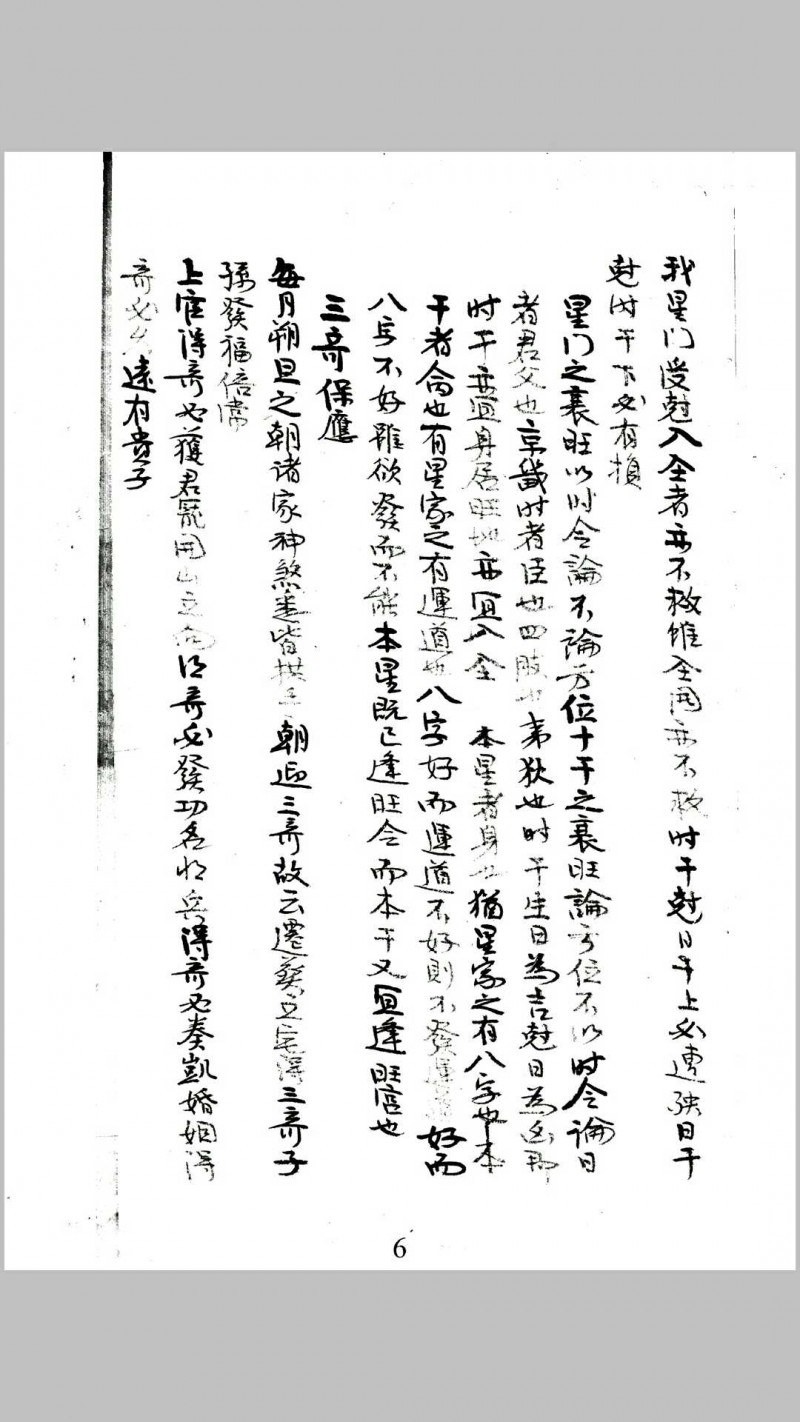 我星门受尅入仝者亦不救雖仝用亦不救时干尅日干上必遭殃日干
尅时干下必有損
星门之衰旺以时令論不論方位十干之衰旺論方位不以时令論日
者君父也京畿时者臣也四肢也夷狄也时干生日為吉尅日為凶那
时干亦宜身居旺地亦宜入仝 本星者身也猶星家之有八字也本
干者命也有星家之有運道也八字好而運道不好則不發運道好而
八字不好雖欲發而不能本星既已逢旺令而本干又宜逢旺宫也
三奇保應
每月朔旦之朝诸家神煞盡皆拱手朝迎三奇故云遷葵立宅得三奇子
孫發福倍常
上官得奇必獲君寵開山立向得奇必發功名將兵得奇必奏凱婚姻得
奇必遠有貴子
6